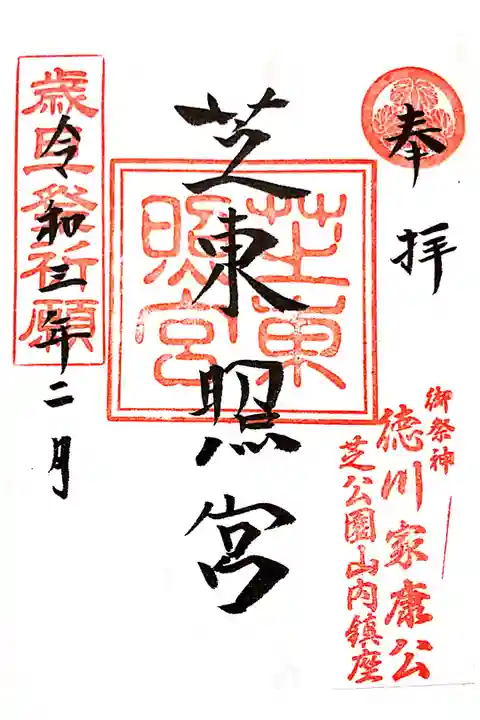 奉拝
御祭神
徳川家康公
芝公園山内鎮座
芝東照宮
芝東
照宮
令和三年二月
歳旦祭祈願